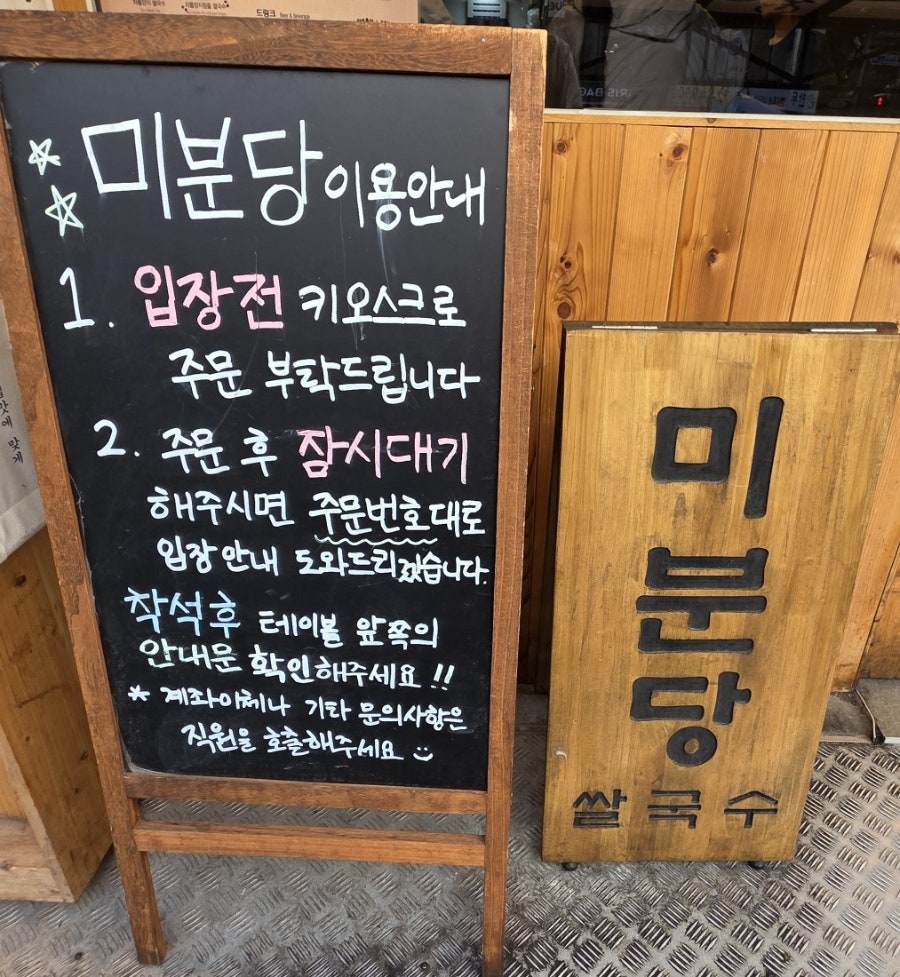 차돌양지 쌀국수
차돌양지 쌀국수
드링크 Beer & Beverage
미분당 이용안내
1. 입장전 키오스크로
주문 부탁드립니다
2. 주문 후 잠시대기
해주시면 주문번호대로
입장안내 도와드리겠습니다.
착석후 테이블 앞쪽의
안내문 확인해주세요!!
* 계좌이체나 기타 문의사항은
직원을 호출해주세요
맞게
미
분
당
쌀국수